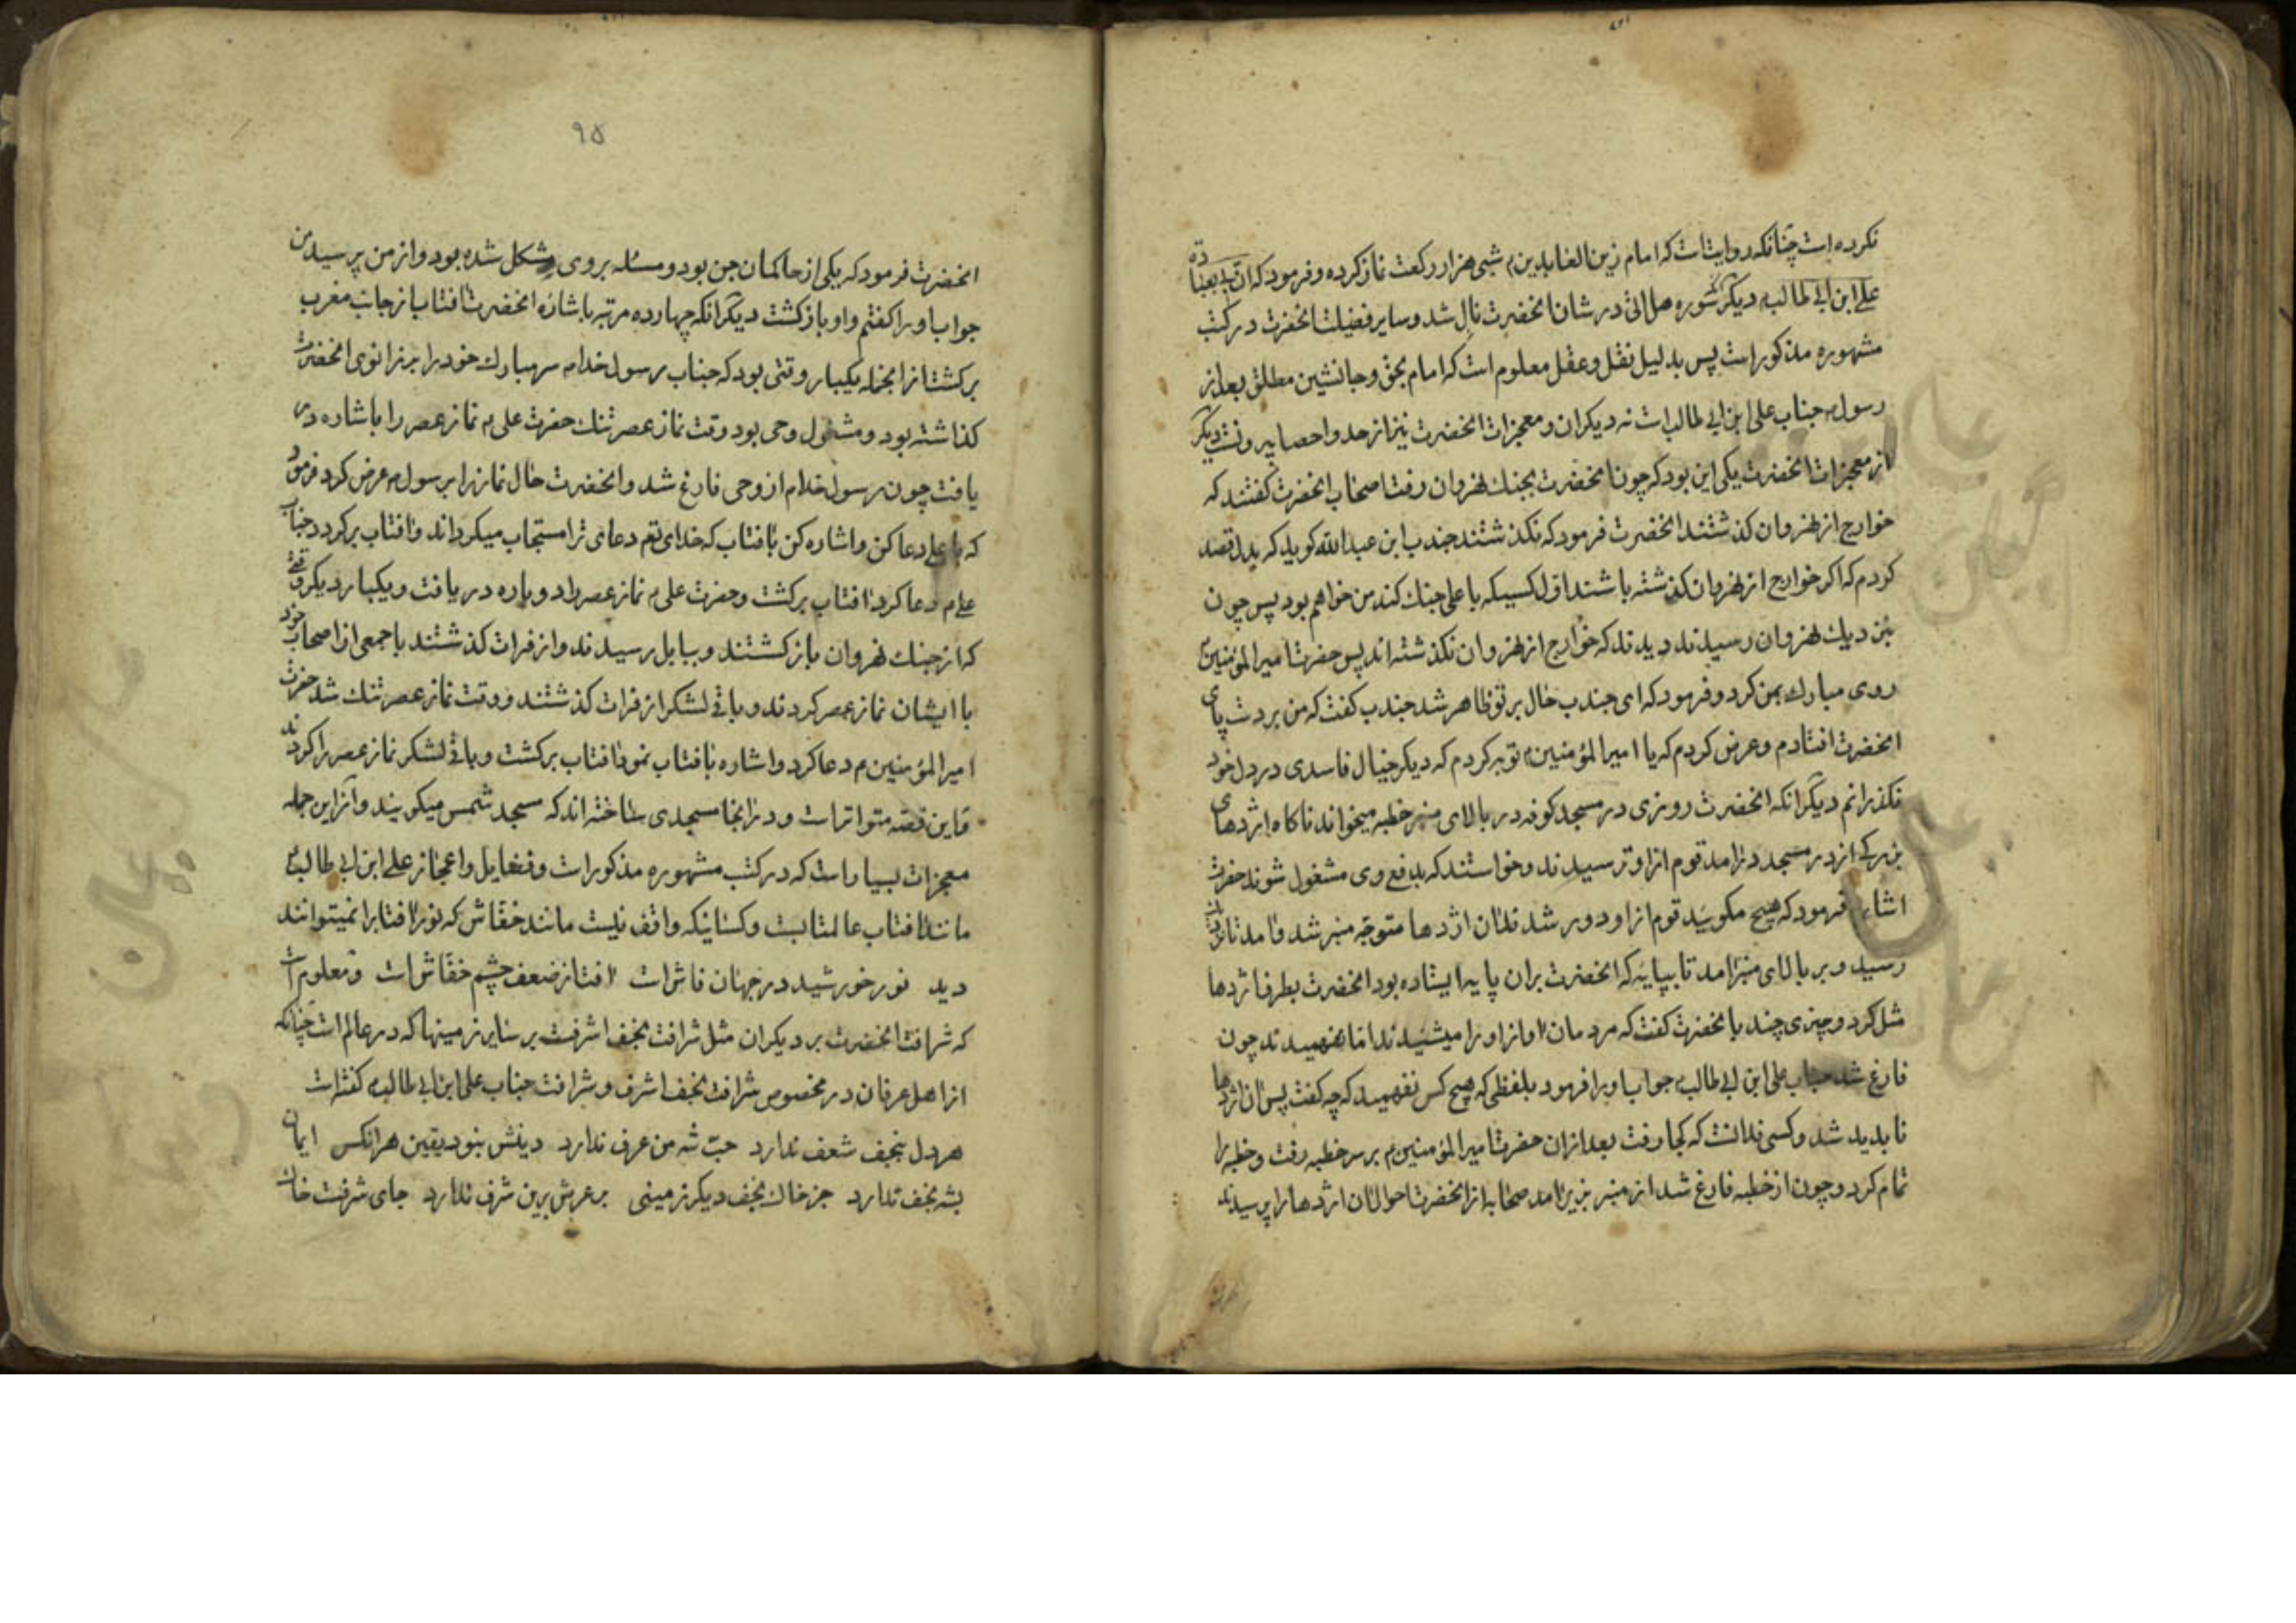 نکرده است چنانکه روایتست که امام زین العابدین م شبی هزار رکعت نماز کرده و فرمود که
علی ابن ابی طالب م دیگر سوره هل اتی در شان انحضرت نازل شد و سایر فضیلت انحضرت در کتب
مشهوره مذکور است پس بدلیل نقل و عقل معلوم است که امام بحق و جانشین مطلق بعد از
رسول م جناب علی ابن ابی طالب است نه دیکران و معجزات انحضرت نیز از حد و احصا بیرونست دیگر
از معجزات انحضرت یکی این بود که چون انحضرت بجنك نهروان رفت اصحاب انحضرت کفتند که
خوارج از نهروان کذشتند انحضرت فرمود که نکذشتند جندب ابن عبد الله کوید که بدل قصد
کردم که اکر خوارج از نهروان کذشته باشند اول کسیکه با علی جنك کند من خواهم بود پس چون
بنزدیك نهروان رسیدند دیدند که خوارج از نهروان نکذشته اند پس حضرت امیر المؤمنین
روی مبارك بمن کرد و فرمود که ای جندب حال بر تو ظاهر شد جندب کفت که من بر دست پای
انحضرت افتادم و عرض کردم که یا امیر المؤمنین م توبه کردم که دیکر خیال فاسدی در دل خود
نکذرانم دیگر انکه انحضرت روزی در مسجد کوفه در بالای منبر خطبه میخواند ناکاه اژدهای
بزرکی از در مسجد درامد قوم ازاو ترسیدند و خواستند که بدفع وی مشغول شوند حضرت
اشاره فرمود که هیچ مکوئید قوم ازاو دور شدند ان اژدها متوجه منبر شد و امد تا
رسید و بر بالای منبر امد تا بپایه که انحضرت بران پایه ایستاده بود انحضرت بطرف اژدها
میل کرد و چیزی چند با انحضرت کفت که مردمان اواز اورا میشنیدند اما نفهمیدند چون
فارغ شد جناب علی ابن ابی طالب م جواب اورا فرمود بلفظی که هیچ کس نفهمید که چه کفت پس ان اژدها
ناپدید شد و کسی ندانست که کجا رفت بعد ازان حضرت امیر المؤمنین م بر سر خطبه رفت و خطبه را
تمام کرد و چون از خطبه فارغ شد از منبر بزیر امد صحابه از انحضرت احوال ان اژدها را پرسیدند
٩۵
انحضرت فرمود که یکی از حاکمان جن بود و مسئله بر وی مشکل شده بود و از من پرسید من
جواب اورا کفتم و او بازکشت دیگر انکه چهارده مرتبه باشاره انحضرت افتاب از جانب مغرب
برکشت ازانجمله یکبار وقتی بود که جناب رسول خدا م سر مبارك خود را بر زانوی انحضرت
کذاشته بود و مشغول وحی بود وقت نماز عصر تنك حضرت علی م نماز عصر را باشاره در
یافت چون رسول خدا م از وحی فارغ شد و انحضرت حال نماز را برسول م عرض کرد فرمود
که یا علی دعا کن و اشاره کن بافتاب که خدای تعم دعای ترا مستجاب میکرداند و افتاب برکردد جناب
علی م دعا کرد افتاب برکشت و حضرت علی م نماز عصر را دوباره دریافت و یکبار دیکر وقتی
که از جنك نهروان بازکشتند و ببابل رسیدند و از فرات کذشتند با جمعی از اصحاب خود
با ایشان نماز عصر کردند و باقی لشکر از فرات کذشتند و وقت نماز عصر تنك شد حضرت
امیر المؤمنین م دعا کرد و اشاره بافتاب نمود افتاب برکشت و باقی لشکر نماز عصر را کردند
و این قصه متواتر است و در انجا مسجدی ساخته اند که مسجد شمس میکویند و از این جمله
معجزات بسیار است که در کتب مشهوره مذکور است و فضایل و اعجاز علی ابن ابی طالب م
مانند افتاب عالمتابست و کسانیکه واقف نیست مانند خفاش که نور افتاب را نمیتوانند
دید نور خورشید در جهان فاش است افت از ضعف چشم خفاش است و معلوم است
که شرافت انحضرت بر دیکران مثل شرافت نجف اشرفست بر سایر زمینها که در عالم است چنانکه
از اهل عرفان در مخصوص شرافت نجف اشرف و شرافت جناب علی ابن ابی طالب م کفته است
هر دل بنجف شعف ندارد حب شه من عرف ندارد دینش نبود یقین هر انکس ایمان
بشه نجف ندارد جز خاك نجف دیکر زمینی بر عرش برین شرف ندارد جای شرفست خاك